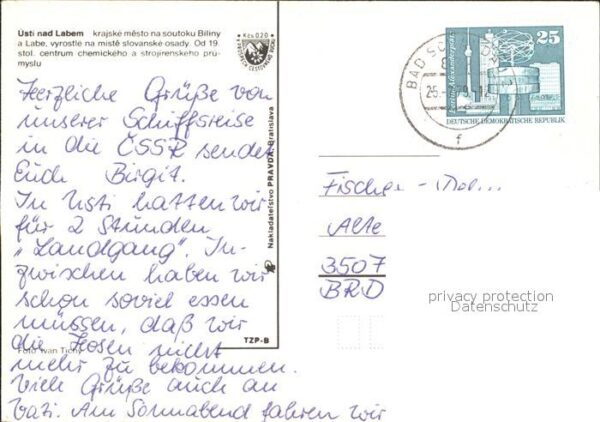 Ústí nad Labem krajské město na soutoku Bíliny
a Labe, vyrostlé na místě slovanské osady. Od 19.
stol. centrum chemického a strojírenského prů-
myslu
Kčs 0,20
Herzliche Grüße von
unserer Schiffsreise
in die ČSSR sendet
Euch Birgit.
In Usti hatten wir
für 2 Stunden
„Landgang". In-
zwischen haben wir
schon soviel essen
müssen, daß wir
die Hosen nicht
mehr zu bekommen.
Viele Grüße auch an
Vati. Am Sonnabend fahren wir
Foto Ivan Tichý
Nakladateľstvo PRAVDA, Bratislava
TZP-B
BAD
25
Berlin, Alexanderplatz
DEUTSCHE DEMOKRATISCHE REPUBLIK
f
Fischer -
Alte
3507
BRD
privacy protection
Datenschutz